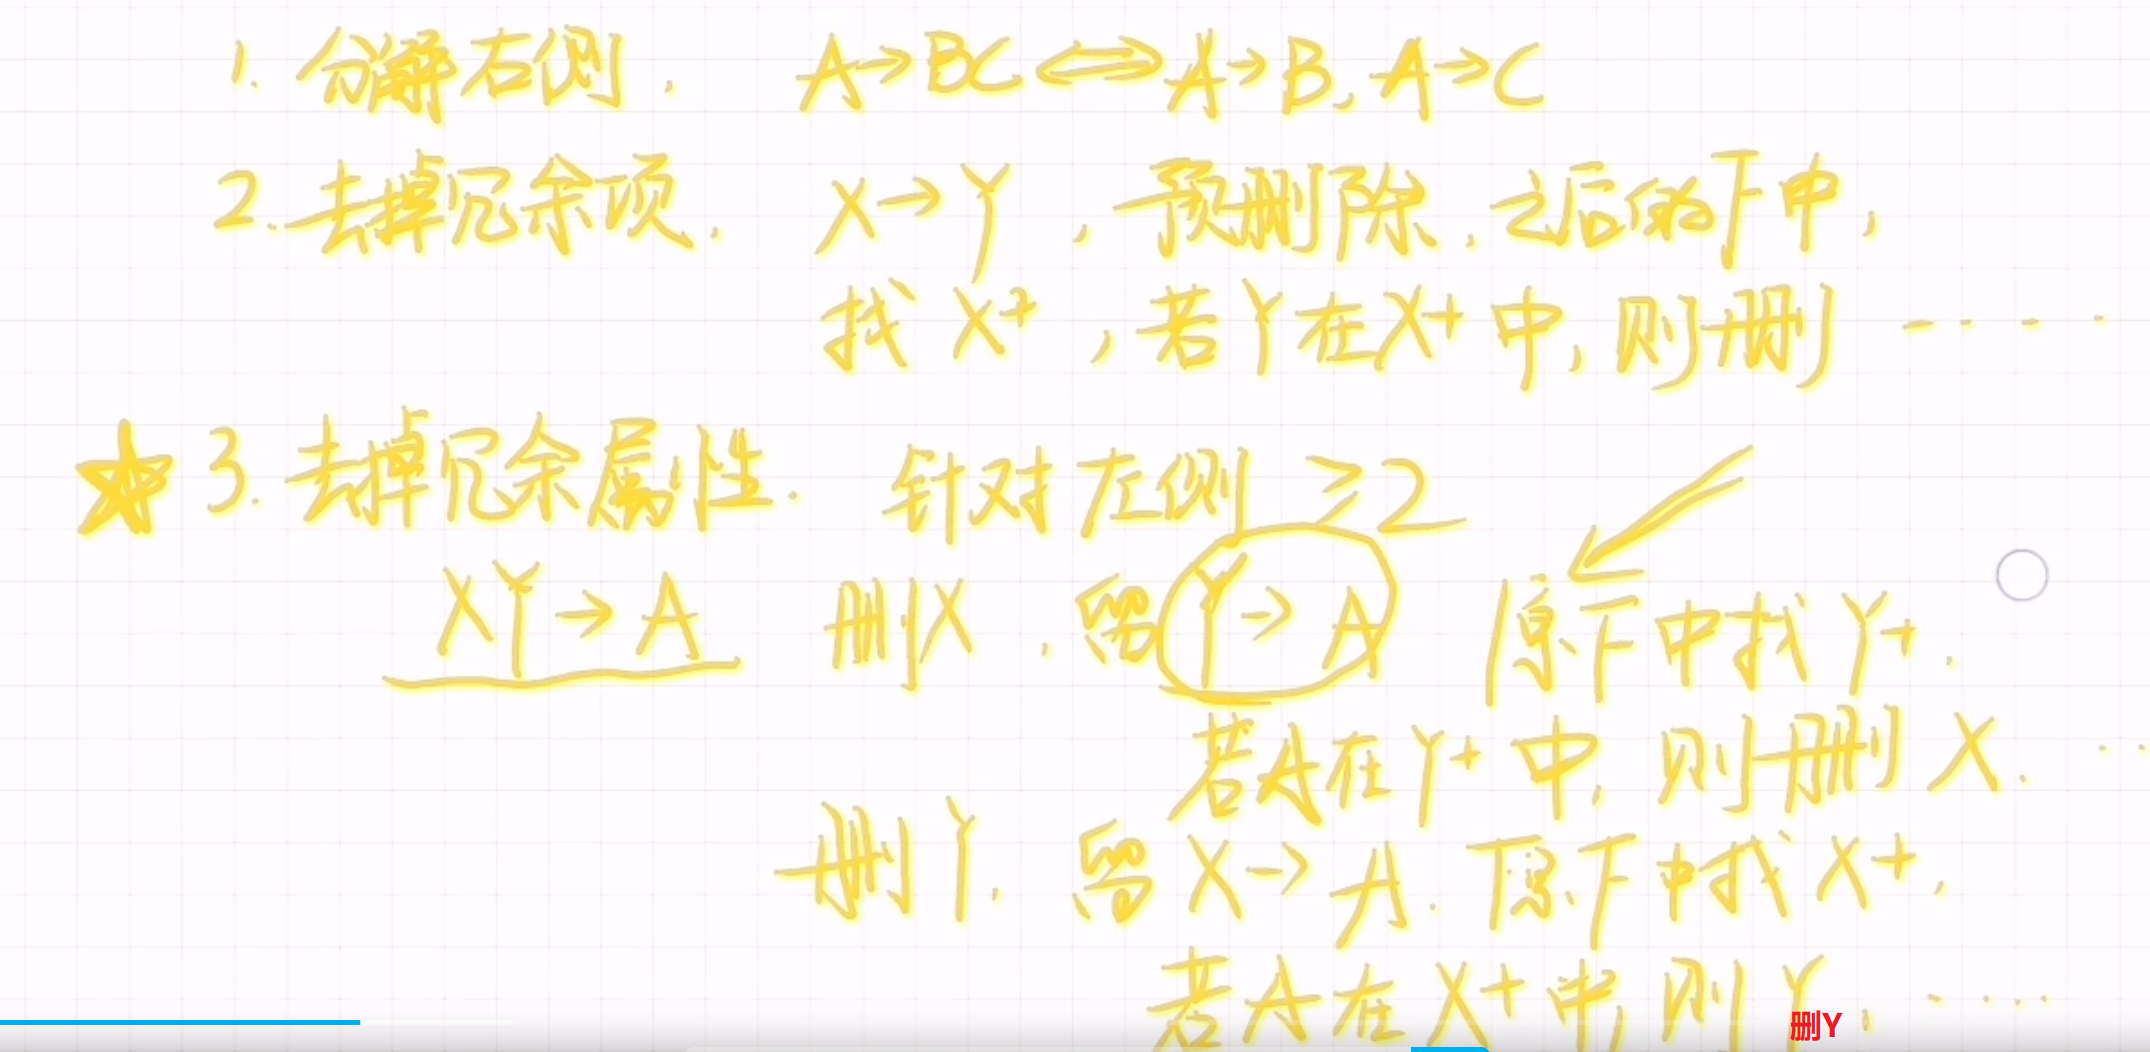 1. 分解右侧. A→BC⟺A→B, A→C
2. 去掉冗余项. X→Y, 预删除. 之后的F中,
找X+, 若Y在X+中, 则删 ·····
★3. 去掉冗余属性. 针对左侧≥2
XY→A 删X, 留Y→A 原F中找Y+.
若A在Y+中, 则删X. ··
删Y. 留X→A. 原F中找X+,
若A在X+中, 则Y, ····
删Y